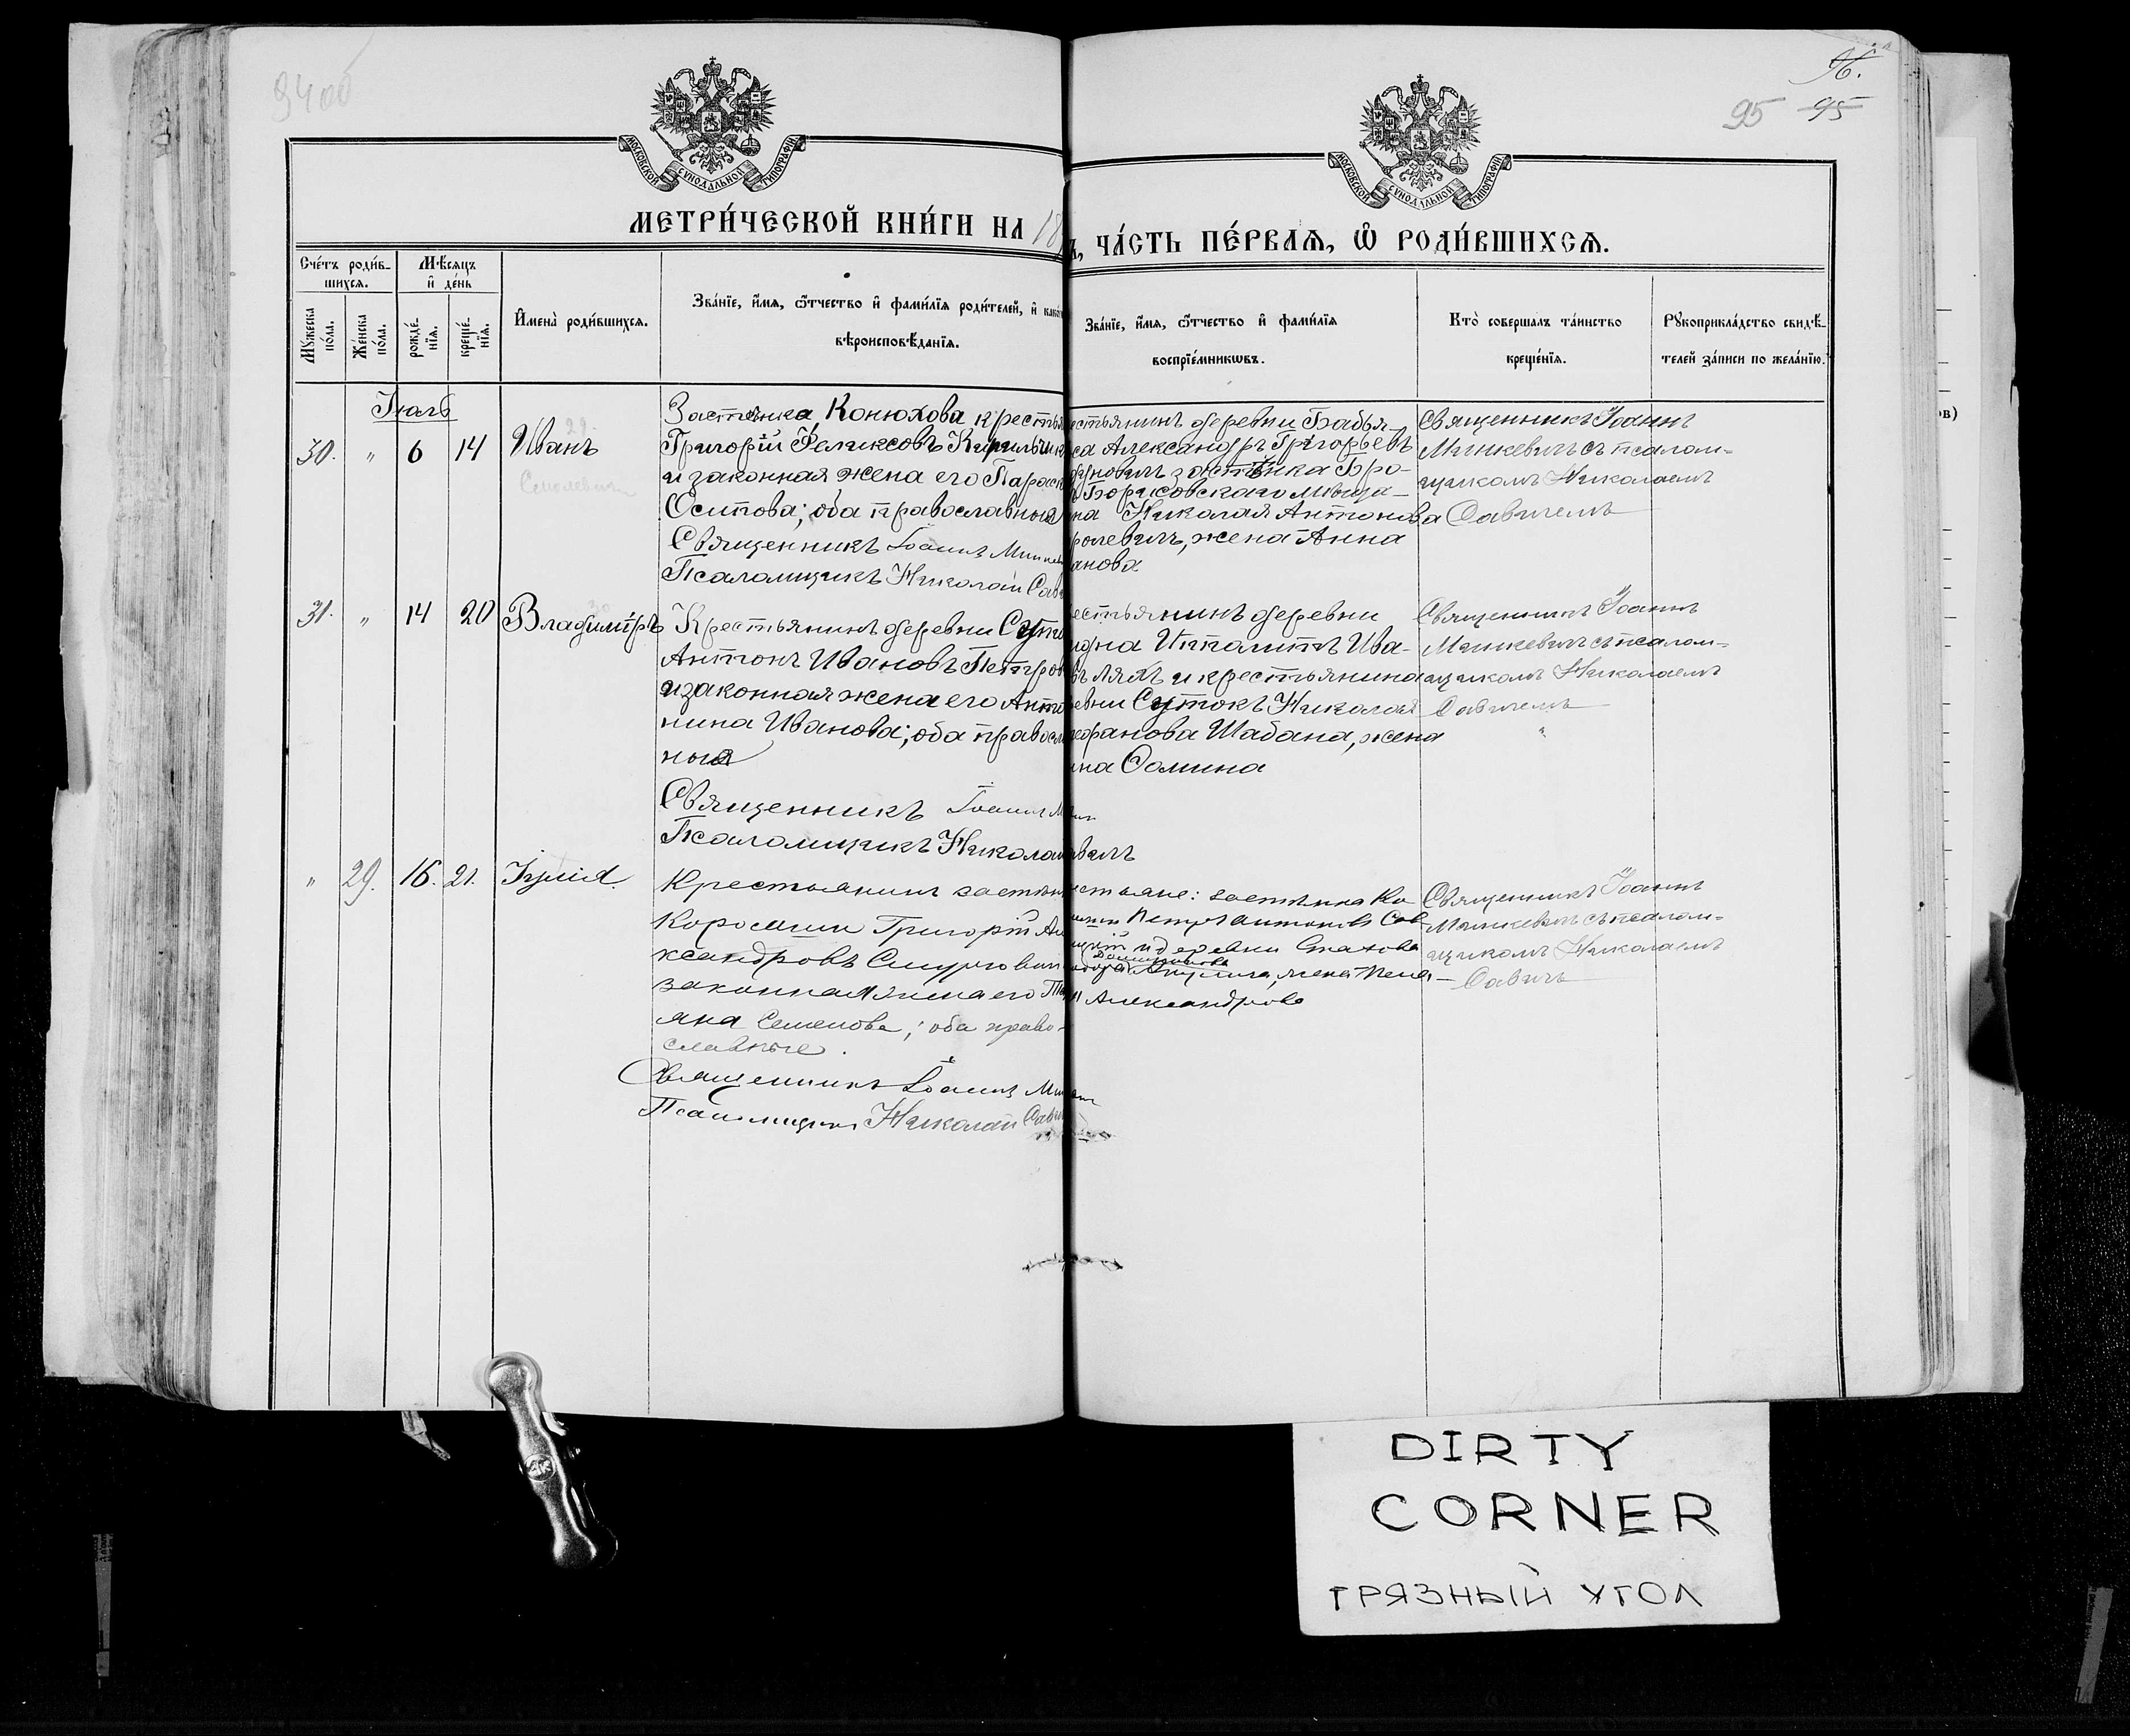 9400
96.
95 95
МОСКОВСКОЙ СУНОДАЛЬНОЙ ТИПОГРАФІИ
МОСКОВСКОЙ СУНОДАЛЬНОЙ ТИПОГРАФІИ
МЕТРИ́ЧЕСКОЙ КНИ́ГИ НА 18
ЧА́СТЬ ПЕ́РВАѦ, Ѽ РОДИ́ВШИХСѦ.
Сче́тъ роди́в-
шихсѧ.
Мѣ́сѧцъ
и҆ де́нь
Мꙋ́жеска по́ла.
Же́нска по́ла.
рожде́-нїѧ.
креще́-нїѧ.
И҆мена̀ роди́вшихсѧ.
Зва́нїе, и҆́мѧ, ѻ҆́тчество и҆ фами́лїѧ роди́телей, и҆ како
вѣроисповѣ́данїѧ.
Зва́нїе, и҆́мѧ, ѻ҆́тчество и҆ фами́лїѧ
воспрїе́мникѡвъ.
Кто̀ совершалъ та́инство
креще́нїѧ.
Рꙋкоприкла́дство свидѣ́-
телей за́писи по жела́нїю.
Іюль
30. " 6 14 Иванъ
Застѣнка Конюхова кресть
Григорій Феликсовъ
и законная жена его Параск
Осипова; оба православныя
Священникъ Іоаннъ Минкев
Псаломщикъ Николай Сав
естьянинъ деревни Бабья-
са Александръ Григорьевъ
застѣнка Бро-
Борисовскаго мѣща-
на Николая Антонова
ролевичъ, жена Анна
анова
Священникъ Іоаннъ
Минкевичъ съ псалом=
щикомъ Николаемъ
Савичемъ
31. " 14 20 Владиміръ
Крестьянинъ деревни Сут
Антонъ Ивановъ Петров
и законная жена его Анто
нина Иванова; оба правосла
ныя
Священникъ Іоаннъ М
Псаломщикъ Николай
вичъ
естьянинъ деревни
Ипполитъ Ива-
въ Ляхъ и крестьянина
евни Сутокъ Николая
фанова Шабана, жена
на Сомина
Священникъ Іоаннъ
Минкевичъ съ псалом=
щикомъ Николаемъ
Савичемъ
" 29. 16. 21. Іулія.
Крестьянинъ застѣн
Григорій Але
ксандровъ
законная жена его Та
яна Семенова; оба право-
славные.
Священникъ Іоаннъ Мин
Псаломщикъ Николай Сави
естьяне: застѣнка Ко
Петръ Антоновъ Сав
и деревни Стахова
жена Пела-
я Александрова
Священникъ Іоаннъ
Минкевичъ съ псалом=
щикомъ Николаемъ
Савичъ
DIRTY
CORNER
ГРЯЗНЫЙ УГОЛ